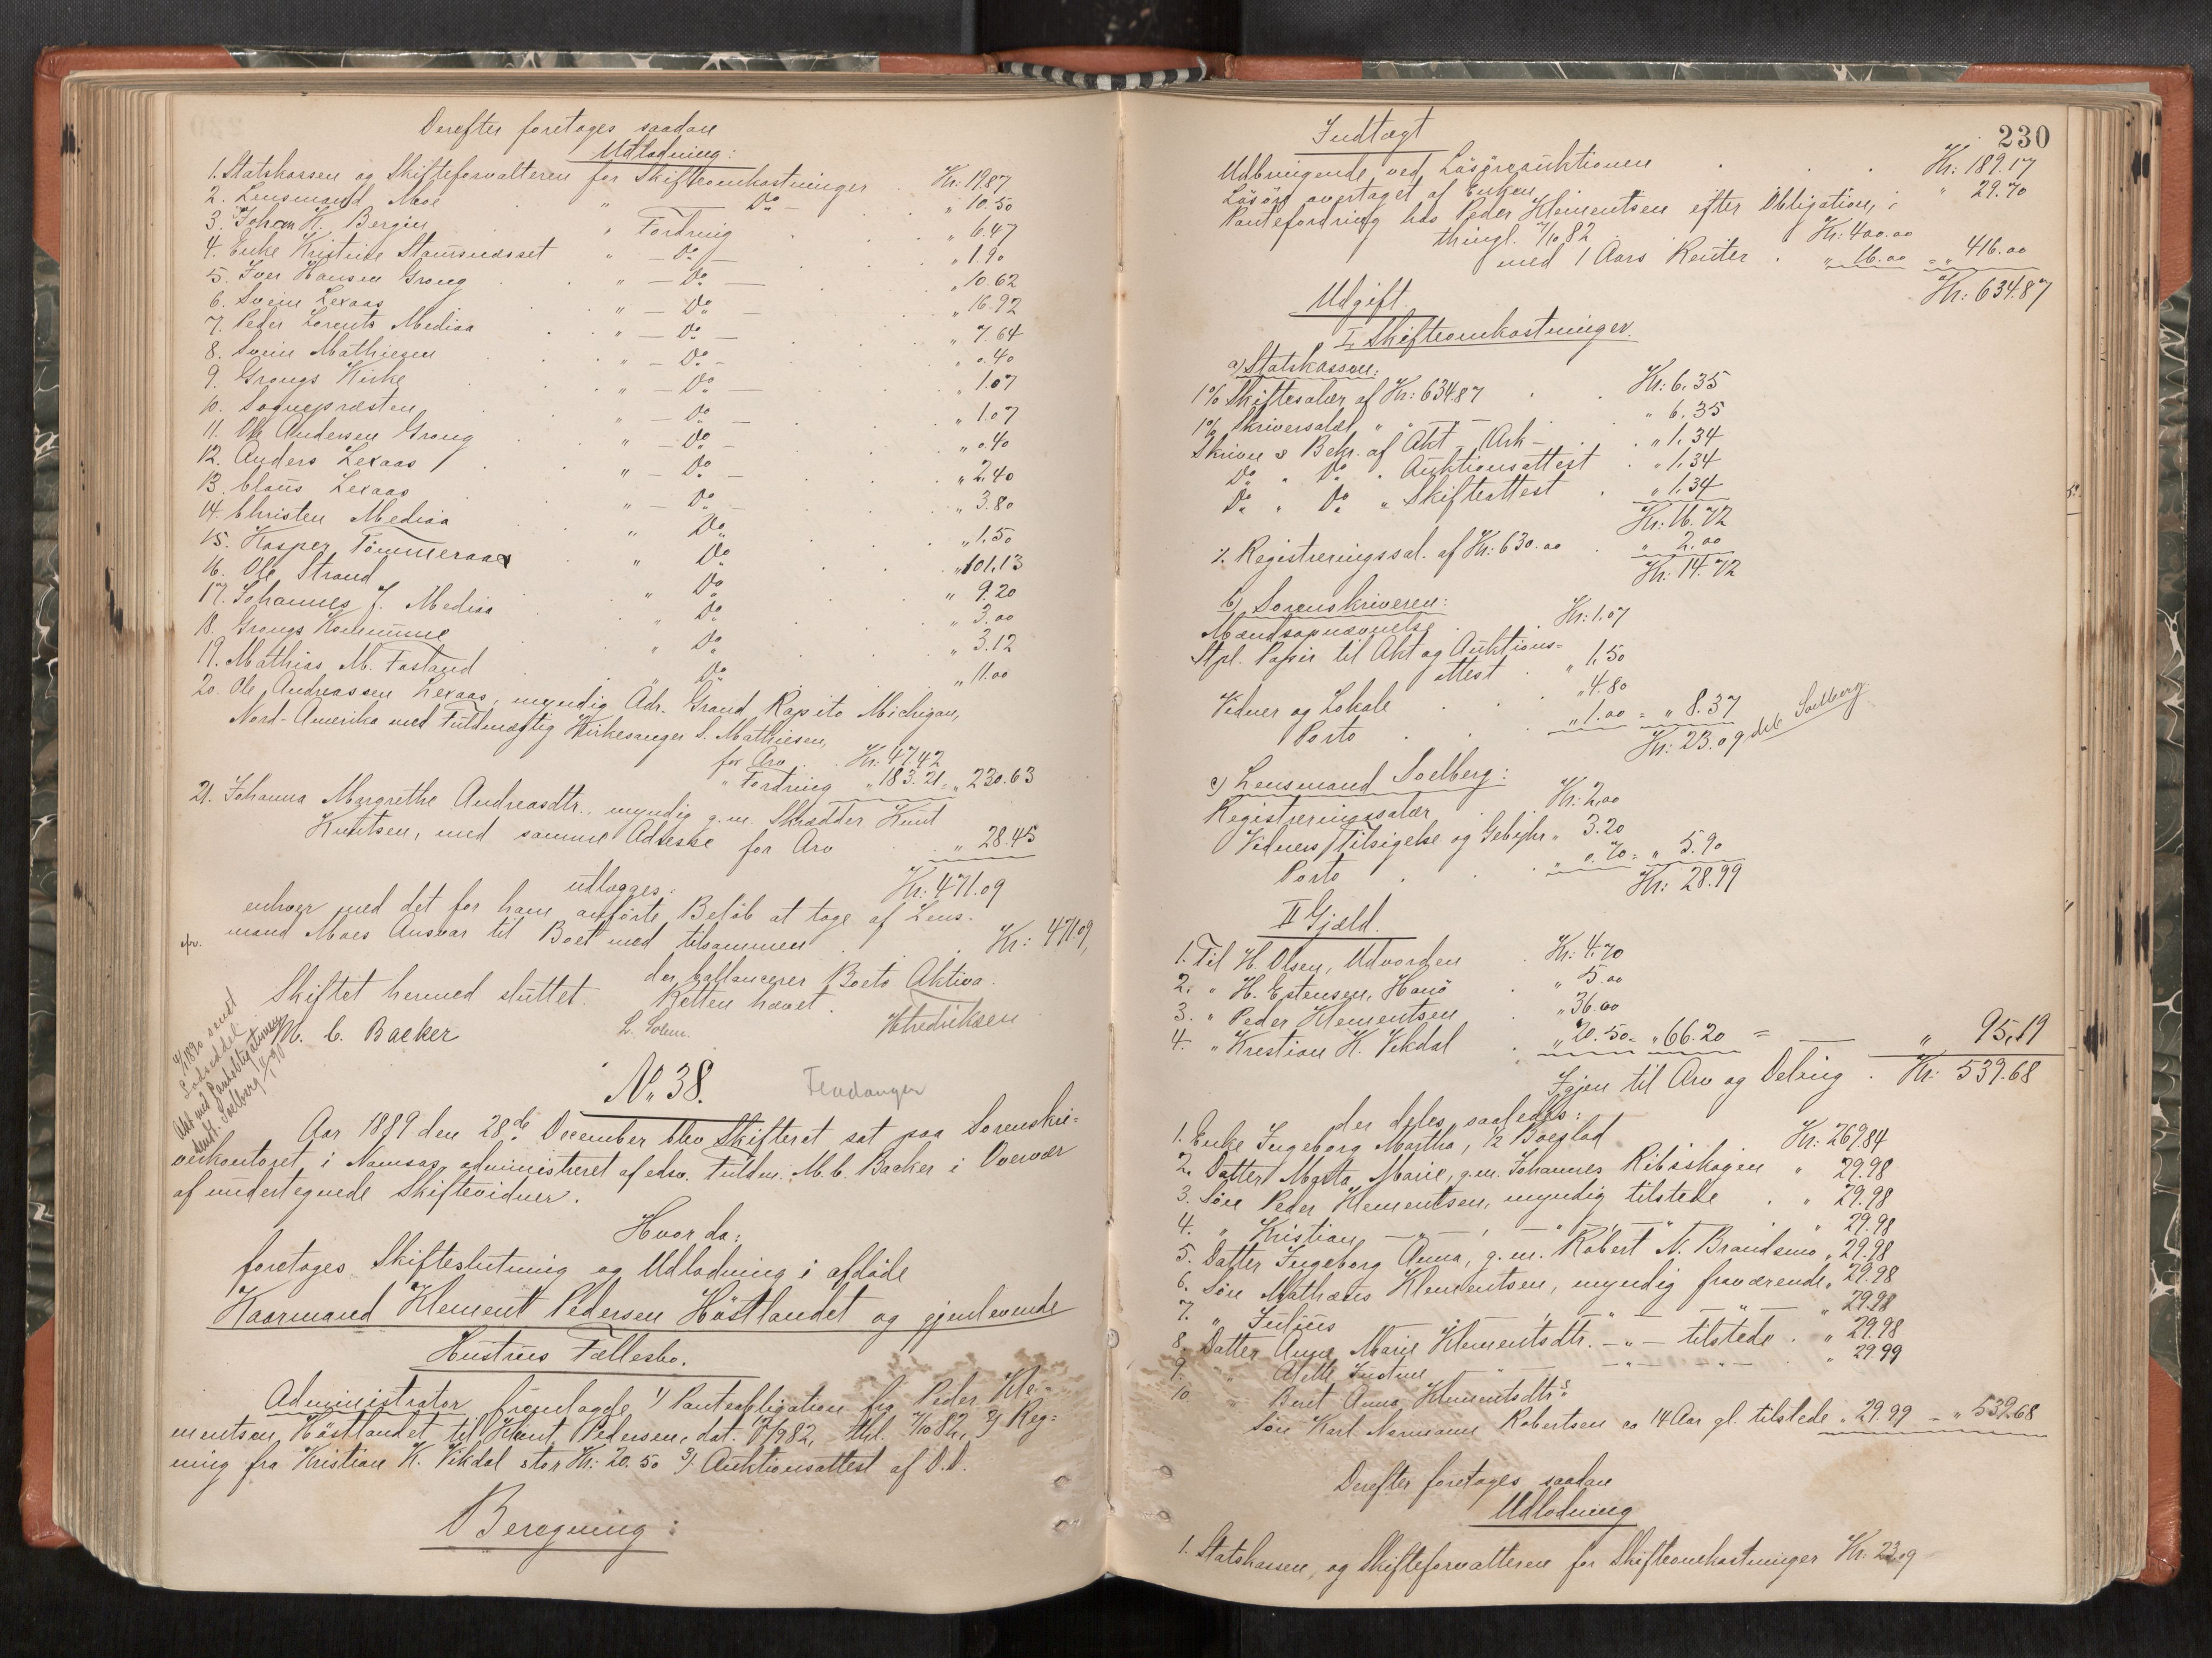 Derefter foretages saadan
Udlodning:
1. Statskassen og Skifteforvalteren for Skifteomkostninger Kr: 19.87
2. Lensmand Moe " Do - " 10.50
3. Johan K. Bergin " Fordring " 6.47
4. Enke Kristine " - Do - " 1.90
5. Iver Hansen Grong " - Do - " 10.62
6. Svein Lexaas " - Do - " 16.92
7. Peder Lorents Mediaa " - Do - " 7.64
8. Svein Mathiesen " - Do - " 0.40
9. Grongs Kirke " - Do - " 1.07
10. Sognepræsten " - Do - " 1.07
11. Ole Andersen Grong " - Do - " 0.40
12. Anders Lexaas " - Do - " 2.40
13. Claus Lexaas " - Do - " 3.80
14. Christen Mediaa " Do " 1.50
15. Kasper Tömmeraas " Do " 101.13
16. Ole Strand " Do " 9.20
17. Johannes J. Mediaa " Do " 3.00
18. Grongs Kommune " Do " 3.12
19. Mathias M. Fosland " Do " 11.00
20. Ole Andreassen Lexaas, myndig Adr. Grand Rapits Michigan,
Nord-Amerika med Fuldmægtig Kirkesanger S. Mathiesen,
for Arv Kr: 47.42
" Fordring " 183.21 = " 230.63
21. Johanna Margrethe Andreasdtr., myndig g. m. Skrædder Knut
Knutsen, med samme Adresse for Arv " 28.45
Kr: 471.09
udlægges:
enhver med det for ham anførte Beløb at tage af Lens-
mand Moes Ansvar til Boet med tilsammen Kr: 471.09,
der ballancerer Boets Aktiva.
Skiftet hermed sluttet. Retten hævet.
M. C. Backer L. Solem. Hfredriksen
1890 sendt
Lodseddel
Akt med Panteobligationer
sendt. Soelberg
No 38.
Aar 1889 den 28de December blev Skifteret sat paa Sorenskri-
verkontoret i Namsos, administreret af edsv. Fuldm. M. C. Backer i Overvær
af undertegnede Skiftevidner.
Hvor da:
foretages Skifteslutning og Udlodning i afdøde
Kaarmand Klement Pedersen Høstlandet og gjenlevende
Hustrus Fællesbo.
Administrator fremlagde 1) Panteobligation fra Peder Kle-
mentsen Høstlandet til Klemt Pedersen, dat. 7/982, thl. 7/1082, 2) Reg-
ning fra Kristian K. Vikdal stor Kr: 20.50 3) Auktionsattest af D.D.
Beregning:
230
Indtægt
Udbringende ved Løsøreauktionen Kr: 189.17
Løsøre overtaget af Enken " 29.70
Pantefordring hos Peder Klementsen efter Obligation,
thingl. 7/1082 Kr: 400.00
med 1 Aars Renter " 16.00 = " 416.00
Kr: 634.87
Udgift.
I. Skifteomkostninger.
a) Statskassen:
1% Skiftesalær af Kr: 634.87 Kr: 6.35
1% Skriversalær " " - " 6.35
Skriver & Bekr. af Akt - Ark - " 1.34
Do " Do " Auktionsattest " 1.34
Do " Do " Skifteattest " 1.34
Kr: 16.72
÷ Registreringssal. af Kr: 630.00 " 2.00
Kr: 14.72
b) Sorenskriveren:
Mændsopnævnelse Kr: 1.07
Stpl. Papir til Akt og Auktions-
attest " 1.50
Vidner og Lokale " 4.80
Porto " 1.00 = " 8.37
Kr: 23.09 Soelberg
c) Lensmand Soelberg:
Registreringssalær Kr: 2.00
Vidners Tilsigelse og Gebyhr " 3.20
Porto " 0.70 = " 5.90
Kr: 28.99
II Gjæld.
1. Til H. Olsen, Udvorden Kr: 4.70
2. " H. Estensen, " 5.00
3. " Peder Klementsen " 36.00
4. " Krestian K. Vikdal " 20.50 = " 66.20 = " 95.19
Igjen til Arv og Deling Kr: 539.68
der deles saaledes:
1. Enke Ingeborg Martha, 1/2 Boeslod Kr: 269.84
2. Datter Marta Marie, g. m. Johannes Ribsskogen " 29.98
3. Søn Peder Klementsen, myndig tilstede " 29.98
4. " Kristian - " - , - " - " - " 29.98
5. Datter Ingeborg Anna, g. m. Robert N. Brandsmo " 29.98
6. Søn Mathæus Klementsen, myndig fraværende " 29.98
7. " Julius - " - , - " - " - " 29.98
8. Datter Anne Marie Klementsdtr. - " - tilstede " 29.98
9. " Alette Justine - " - - " - " 29.99
10 " Beret Anna Klementsdtrs
Søn Karl Normann Robertsen ca 14 Aar gl. tilstede " 29.99 = " 539.68
Derefter foretages saadan
Udlodning
1. Statskassen og Skifteforvalteren for Skifteomkostninger Kr: 23.09